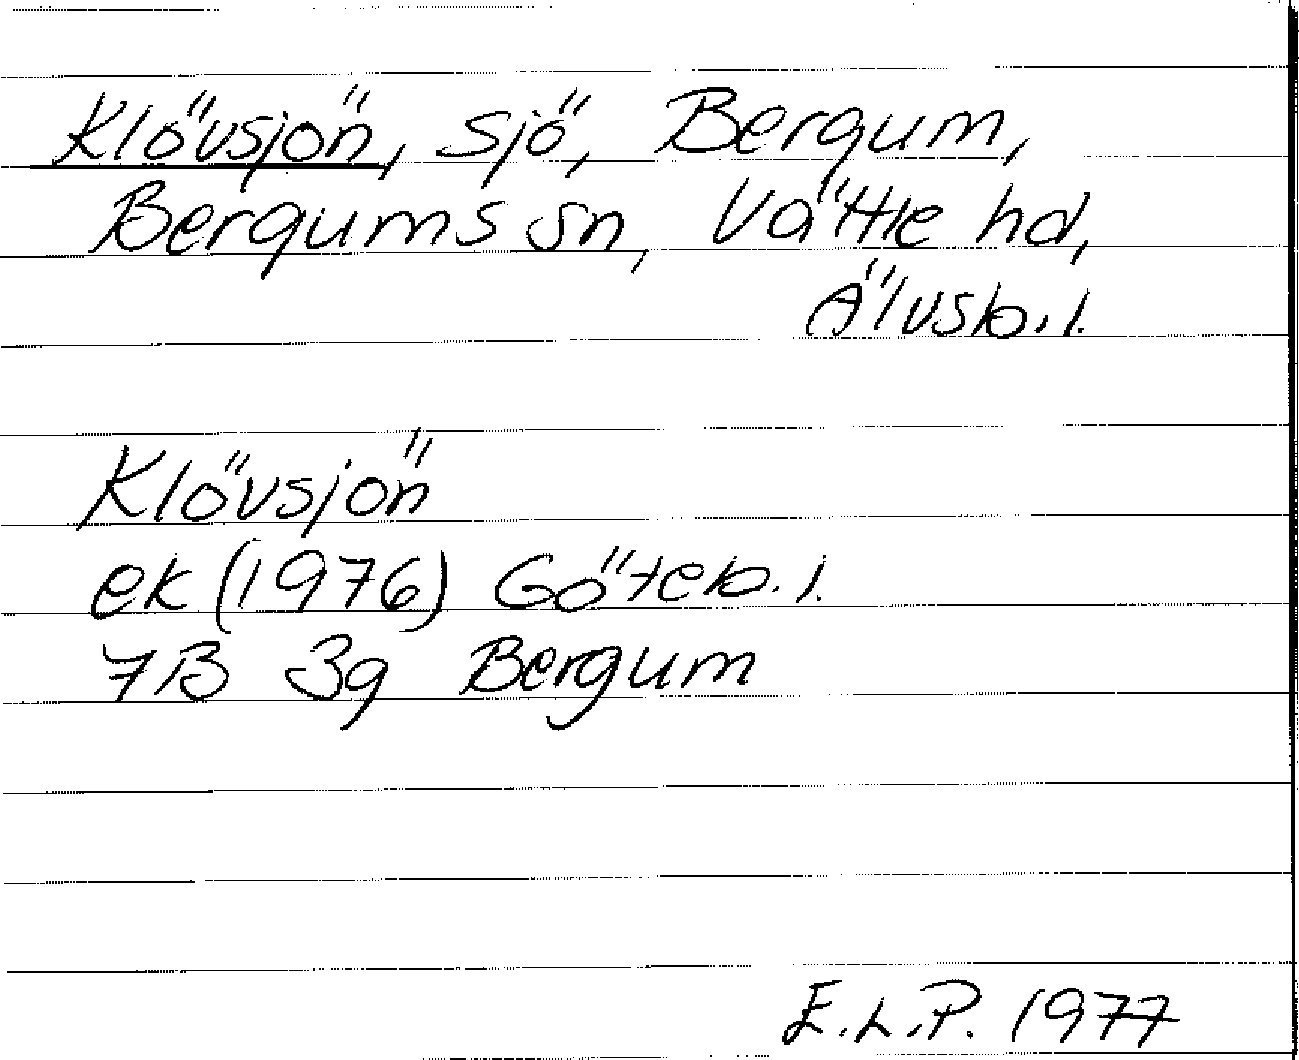 Klövsjön, sjö, Bergum,
Bergums sn, Vättle hd,
Älvsb. l.
Klövsjön
ek (1976) Göteb. l.
7B 3g Bergum
E.L.P. 1977